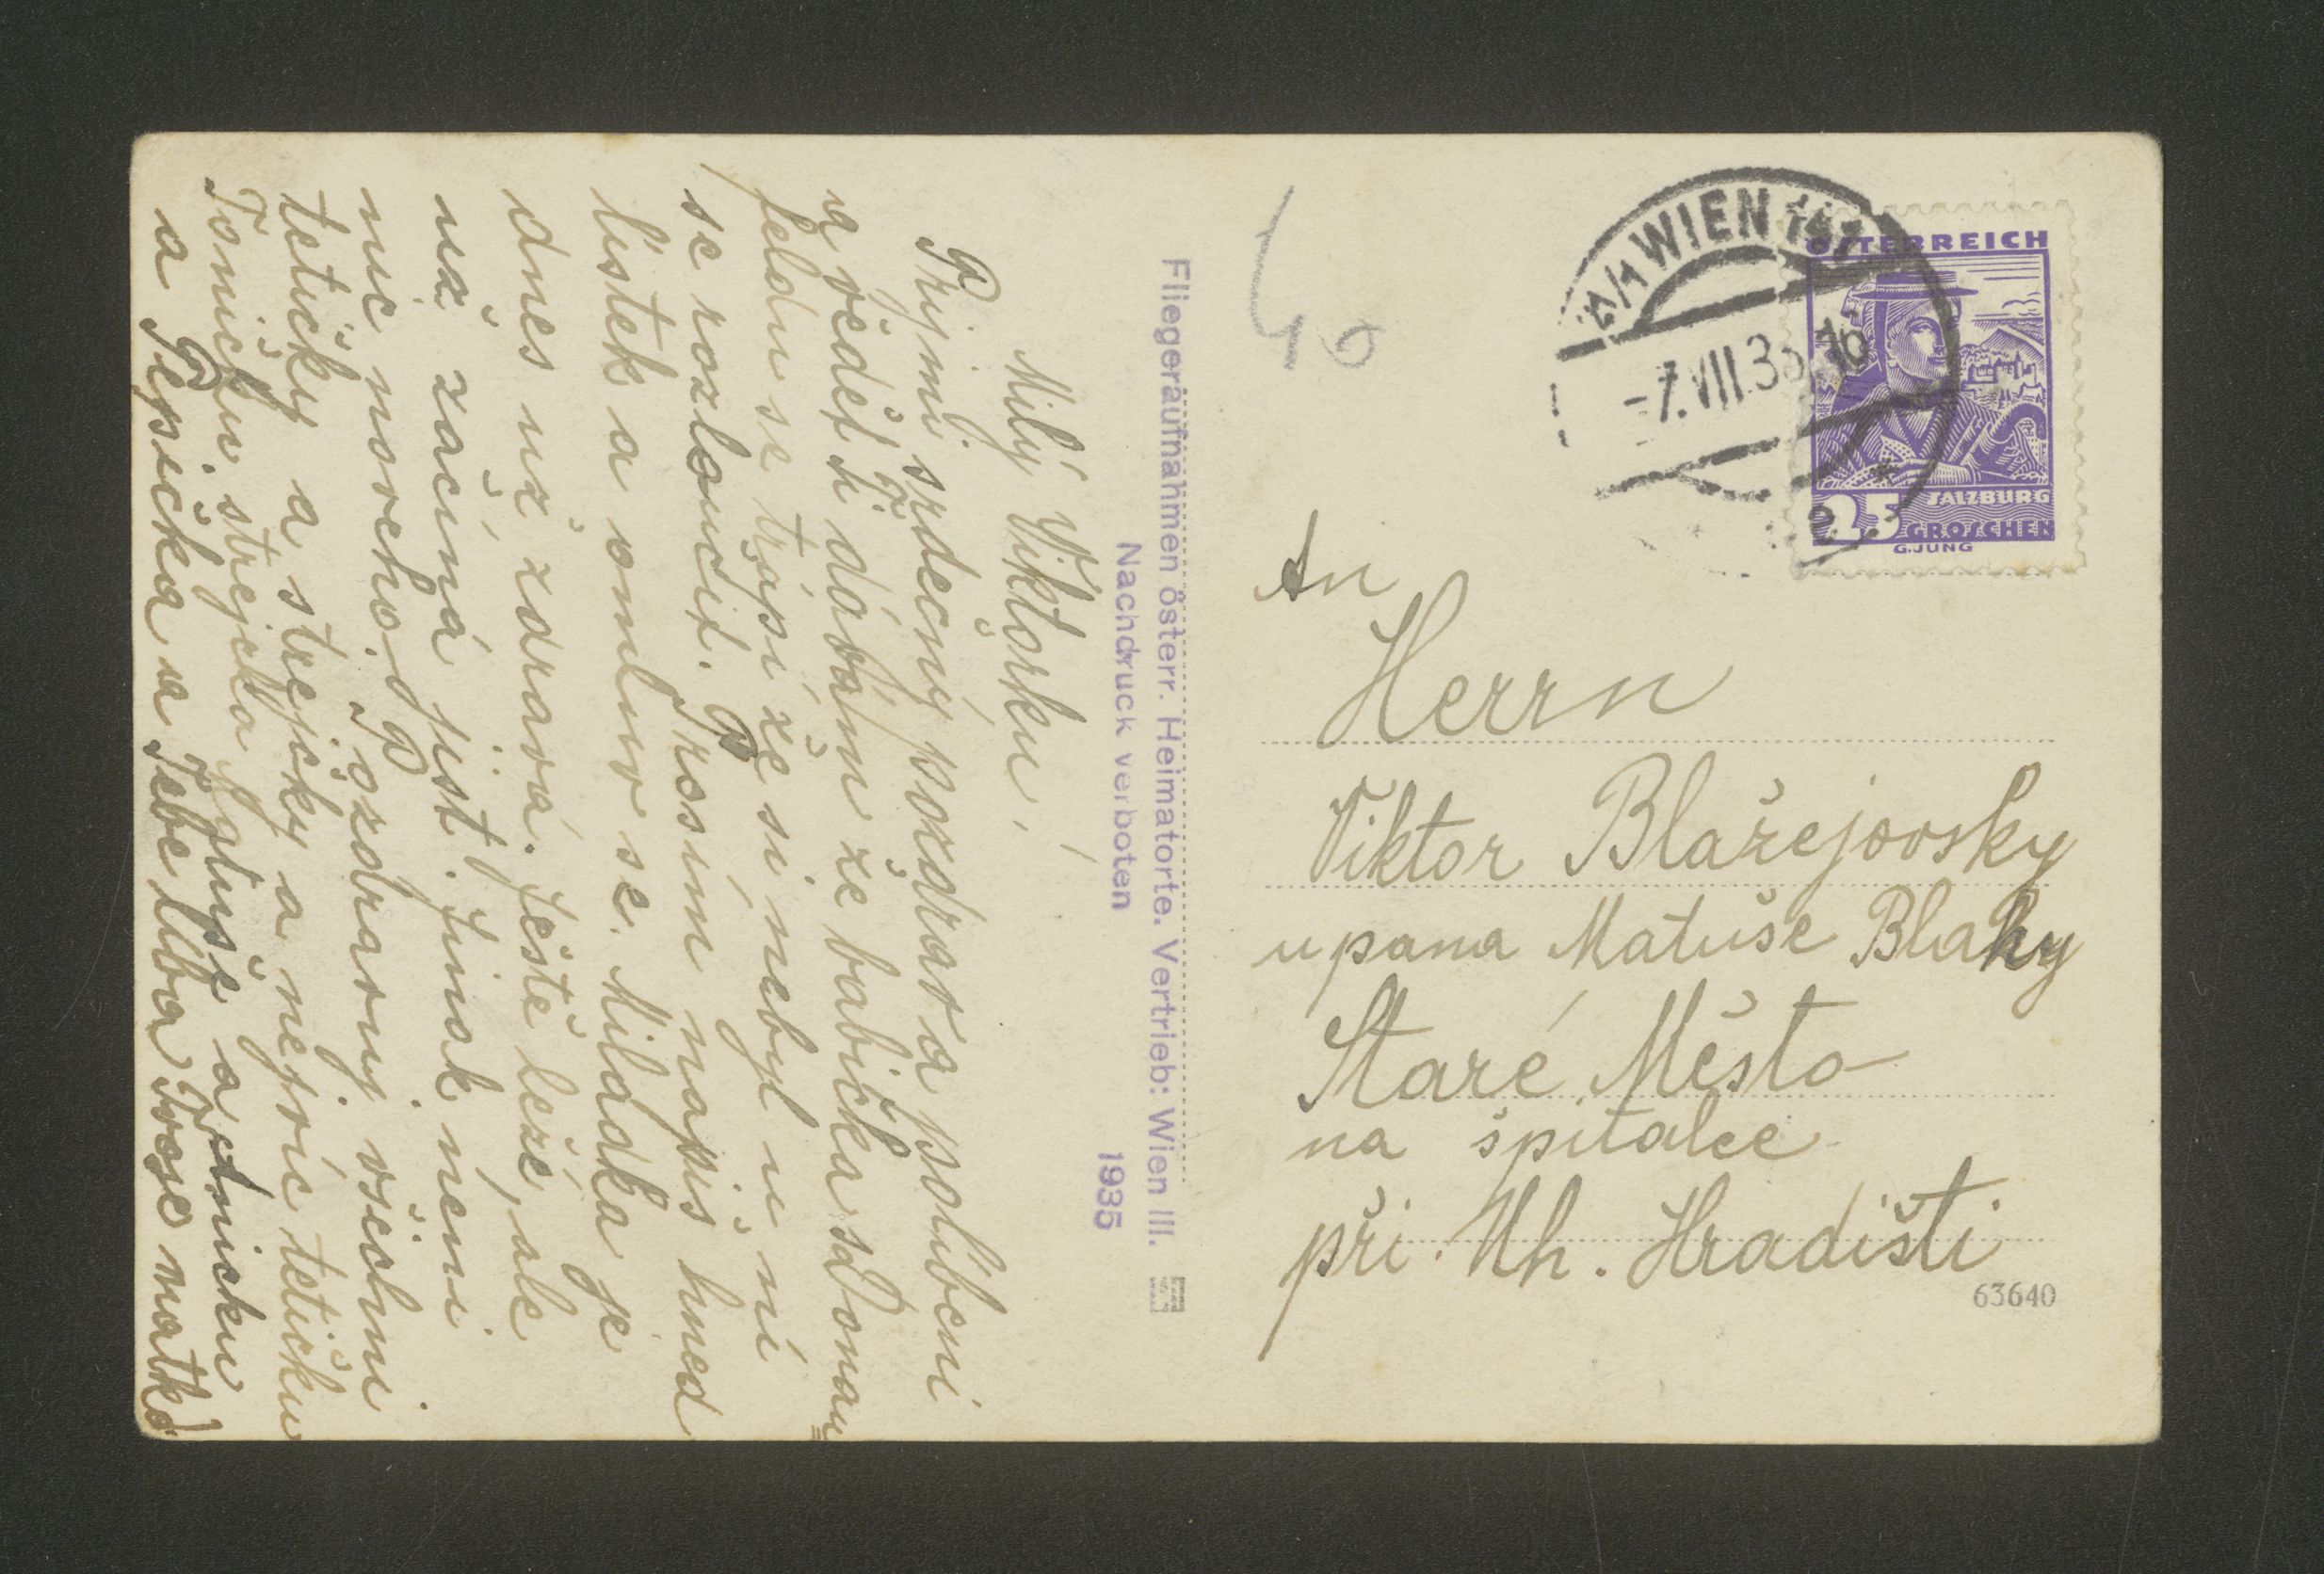 Milý Viktorku,
Přijmi srdečný pozdrav a políbení
a vědět ti dávám že babička s Donau
feldu se trápí že si nebyl u ní
se rozloučit. Prosím napiš hned
lístek a omluv se. Miládka je
dnes už zdravá. Ještě leží, ale
už začíná jíst. Jinak není
nic nového. Pozdravuj všechni
tetičky a strejčky a nejvíc tetičku
Toničku strejčka Matuše a Tetničku
a Pepíčka a Tebe líbá Tvoje matka
Fliegeraufnahmen österr. Heimatorte. Vertrieb: Wien III.
Nachdruck verboten
1935
40
WIEN
-7.VIII.35 16
ÖSTERREICH
SALZBURG
25 GROSCHEN
G.JUNG
An
Herrn
Viktor Blažejovsky
u pana Matuše Blahy
Staré Město
na špitalce
při Uh. Hradišti
63640